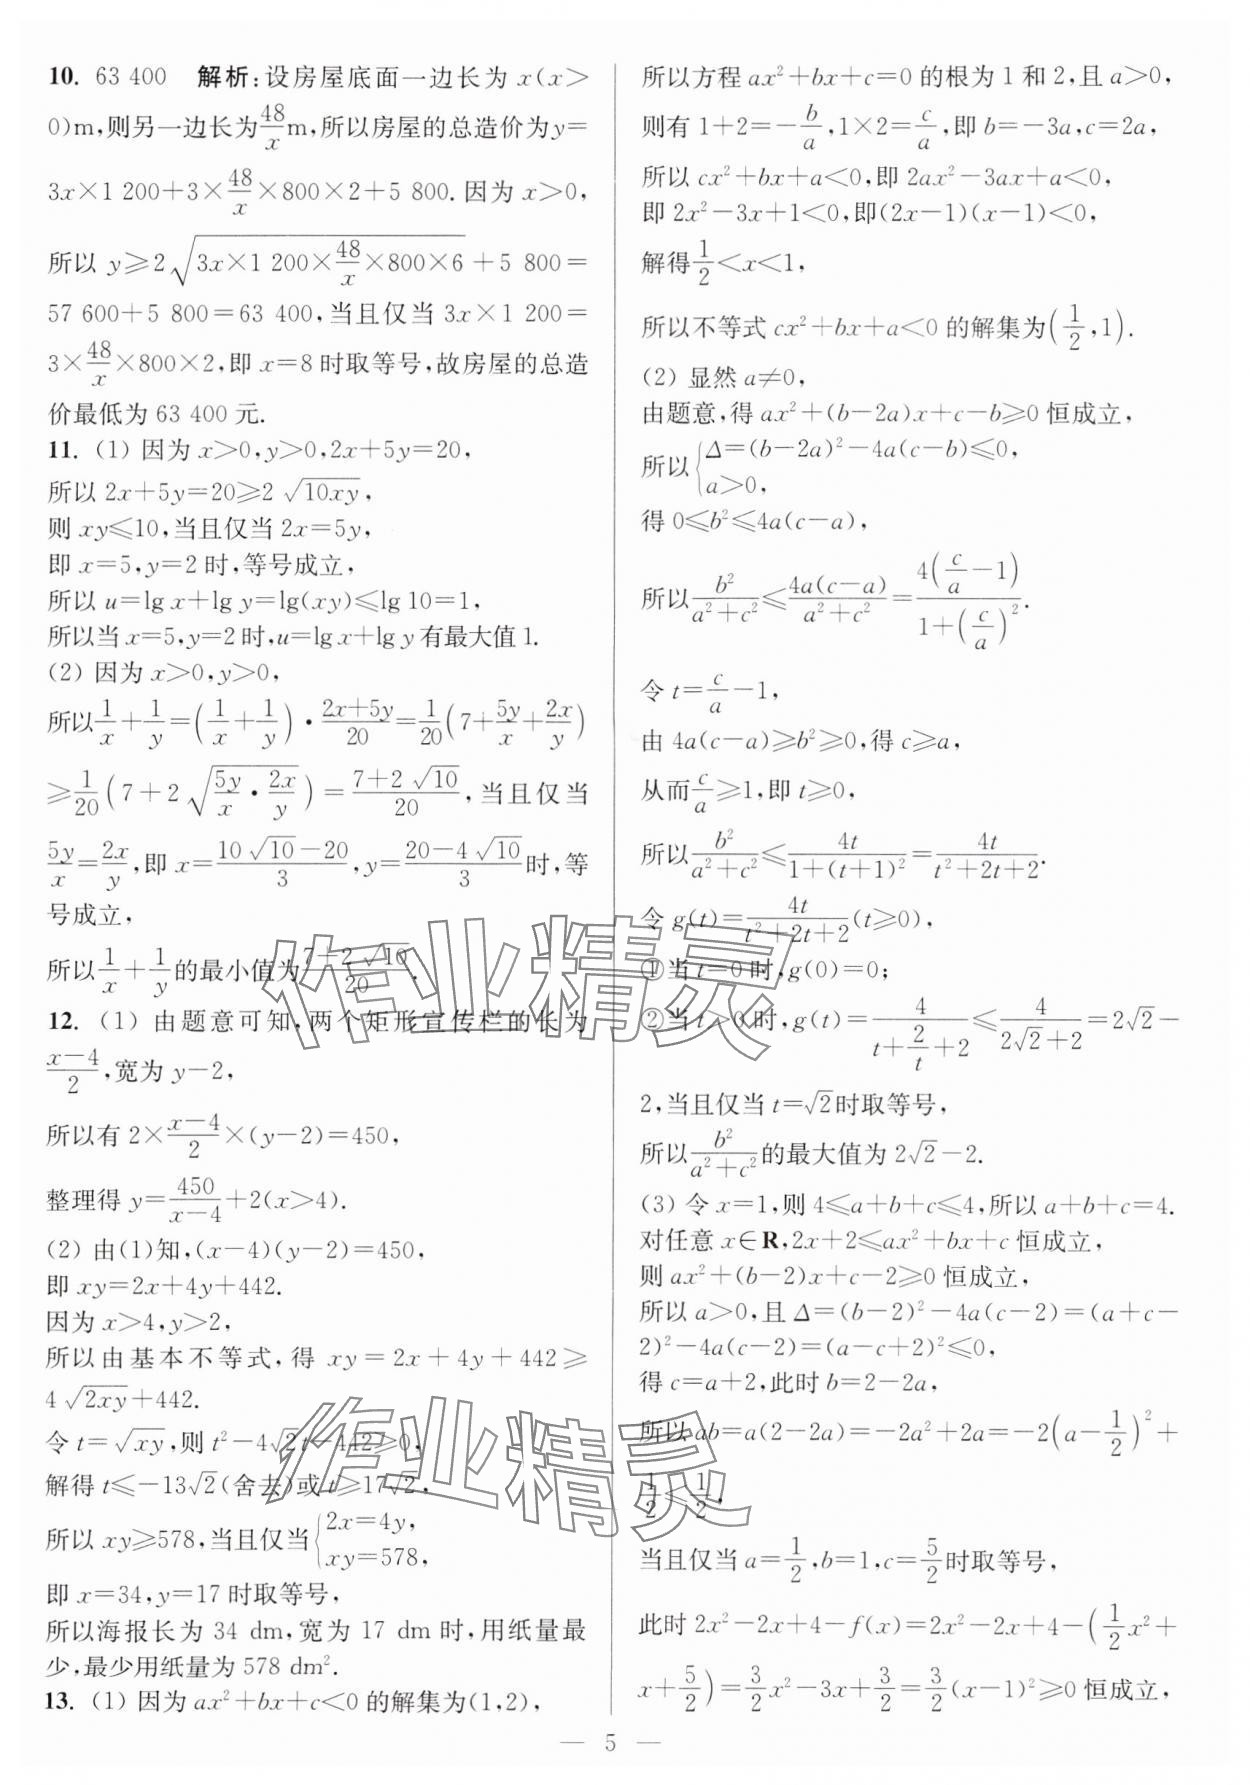 10. 63 400 解析:设房屋底面一边长为 x(x>
0)m,则另一边长为48/x m,所以房屋的总造价为y=
3x×1 200+3×48/x×800×2+5 800.因为 x>0,
所以 y≥2√(3x×1 200×48/x×800×6)+5 800=
57 600+5 800=63 400,当且仅当 3x×1 200=
3×48/x×800×2,即 x=8 时取等号,故房屋的总造
价最低为 63 400 元.
11. (1) 因为 x>0,y>0,2x+5y=20,
所以 2x+5y=20≥2√(10xy),
则 xy≤10,当且仅当 2x=5y,
即 x=5,y=2 时,等号成立,
所以 u=lg x+lg y=lg(xy)≤lg 10=1,
所以当 x=5,y=2 时,u=lg x+lg y 有最大值 1.
(2) 因为 x>0,y>0,
所以1/x+1/y=(1/x+1/y)·(2x+5y)/20=1/20(7+5y/x+2x/y)
≥1/20(7+2√(5y/x·2x/y))=(7+2√10)/20,当且仅当
5y/x=2x/y,即 x=(10√10-20)/3,y=(20-4√10)/3时,等
号成立,
所以1/x+1/y的最小值为(7+2√10)/20.
12. (1) 由题意可知,两个矩形宣传栏的长为
(x-4)/2,宽为 y-2,
所以有 2×(x-4)/2×(y-2)=450,
整理得 y=450/(x-4)+2(x>4).
(2) 由(1)知,(x-4)(y-2)=450,
即 xy=2x+4y+442.
因为 x>4,y>2,
所以由基本不等式,得 xy=2x+4y+442≥
4√(2xy)+442.
令 t=√(xy),则 t²-4√2t-442≥0,
解得 t≤-13√2(舍去)或 t≥17√2,
所以 xy≥578,当且仅当{2x=4y, xy=578,
即 x=34,y=17 时取等号,
所以海报长为 34 dm,宽为 17 dm 时,用纸量最
少,最少用纸量为 578 dm².
13. (1) 因为 ax²+bx+c<0 的解集为(1,2),
所以方程 ax²+bx+c=0 的根为 1 和 2,且 a>0,
则有 1+2=-b/a,1×2=c/a,即 b=-3a,c=2a,
所以 cx²+bx+a<0,即 2ax²-3ax+a<0,
即 2x²-3x+1<0,即(2x-1)(x-1)<0,
解得1/2<x<1,
所以不等式 cx²+bx+a<0 的解集为(1/2,1).
(2) 显然 a≠0,
由题意,得 ax²+(b-2a)x+c-b≥0 恒成立,
所以{Δ=(b-2a)²-4a(c-b)≤0, a>0,
得 0≤b²≤4a(c-a),
所以b²/(a²+c²)≤4a(c-a)/(a²+c²)=4(c/a-1)/(1+(c/a)²).
令 t=c/a-1,
由 4a(c-a)≥b²≥0,得 c≥a,
从而c/a≥1,即 t≥0,
所以b²/(a²+c²)≤4t/(1+(t+1)²)=4t/(t²+2t+2).
令 g(t)=4t/(t²+2t+2)(t≥0),
①当 t=0 时,g(0)=0;
②当 t>0时,g(t)=4/(t+2/t+2)≤4/(2√2+2)=2√2-
2,当且仅当 t=√2时取等号,
所以b²/(a²+c²)的最大值为 2√2-2.
(3) 令 x=1,则 4≤a+b+c≤4,所以 a+b+c=4.
对任意 x∈R,2x+2≤ax²+bx+c 恒成立,
则 ax²+(b-2)x+c-2≥0 恒成立,
所以 a>0,且 Δ=(b-2)²-4a(c-2)=(a+c-
2)²-4a(c-2)=(a-c+2)²≤0,
得 c=a+2,此时 b=2-2a,
所以 ab=a(2-2a)=-2a²+2a=-2(a-1/2)²+
1/2≤1/2,
当且仅当 a=1/2,b=1,c=5/2时取等号,
此时 2x²-2x+4-f(x)=2x²-2x+4-(1/2x²+
x+5/2)=3/2x²-3x+3/2=3/2(x-1)²≥0 恒成立,
— 5 —
作业精灵
作业精灵